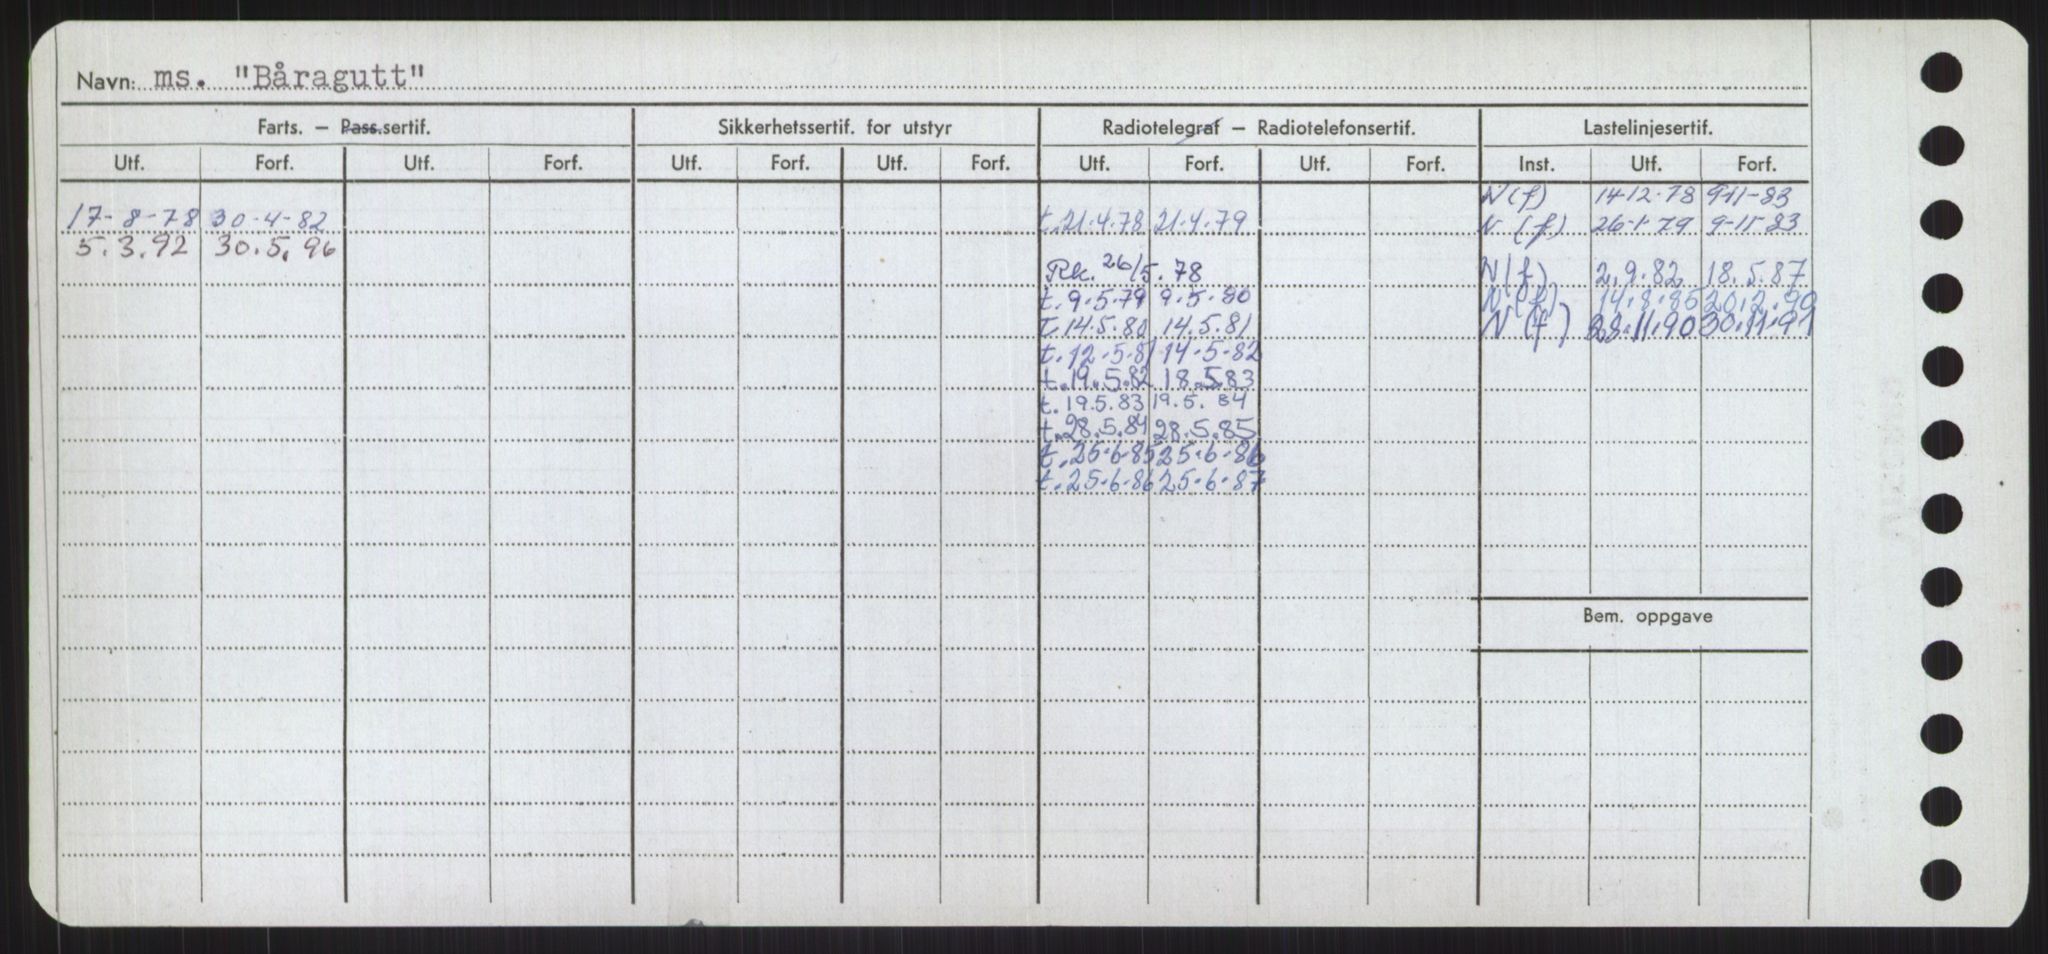 Navn: ms. "Båragutt"
Farts. — Pass.sertif. Sikkerhetssertif. for utstyr Radiotelegraf — Radiotelefonsertif. Lastelinjesertif.
Utf. Forf. Utf. Forf. Utf. Forf. Utf. Forf. Utf. Forf. Utf. Forf. Inst. Utf. Forf.
N(f) 14-12-78 9-11-83
17-8-78 30-4-82 t.21.4.78 21.4.79 N (f) 26-1-79 9-11-83
5.3.92 30.5.96
Rk. 26/5.78 N(f) 2.9.82 18.5.87
t.9.5.79 9.5.80 N(f) 14.8.85 20.2.90
T.14.5.80 14.5.81 N (f) 28.11.90 30.11.91
t.12.5.81 14.5.82
t.19.5.82 18.5.83
t.19.5.83 19.5.84
t.28.5.84 28.5.85
t.25.6.85 25.6.86
t.25.6.86 25.6.87
Bem. oppgave